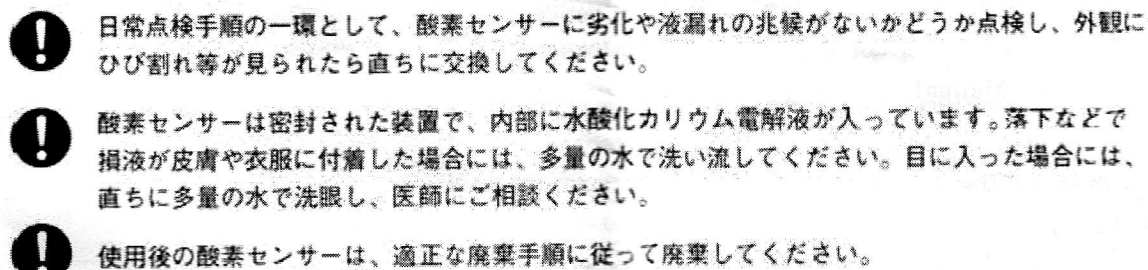 日常点検手順の一環として、酸素センサーに劣化や液漏れの兆候がないかどうか点検し、外観に
ひび割れ等が見られたら直ちに交換してください。
酸素センサーは密封された装置で、内部に水酸化カリウム電解液が入っています。落下などで
損液が皮膚や衣服に付着した場合には、多量の水で洗い流してください。目に入った場合には、
直ちに多量の水で洗眼し、医師にご相談ください。
使用後の酸素センサーは、適正な廃棄手順に従って廃棄してください。